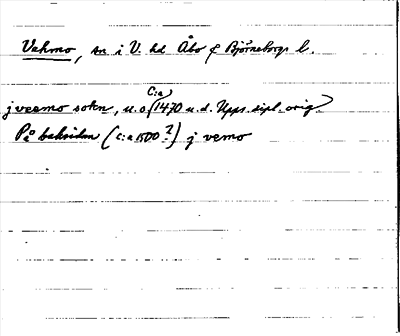 Vehmo, sn i V. hd Åbo o Björneborgs l.
j veemo sokn, u.o. (C:a 1470 u.d. Upps. dipl. orig.)
På baksidan (c:a 1500?) j vemo